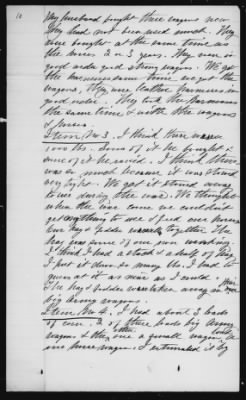 10
My husband bought three wagons new
they had not been used much. They
were bought at the same time as
the mules 2 or 3 years. They were in
good order good strong wagons. We got
the harness same time we got the
wagons, they were leather harness in
good order. They took the harness
the same time & with the wagons
& mules.
Item No 3. I think there was
1000 lbs. Some of it he bought &
some of it he raised. I think there
was so much because it was stored
very tight. We got it stored away
to use during the war. We thought
when the war came we couldn't
get anything to use & feed our horses
Our hay & fodder were together. The
hay was some of our own
I think I had a stack & a half of hay.
I put it down as many lbs. I had to
guess at it as near as I could.
The hay & fodder was taken away in their
big army wagons.
Item No 4. I had about 3 loads
of corn. 2 of these loads big army
wagons & the other one a small wagon
one horse wagon. I estimated it by